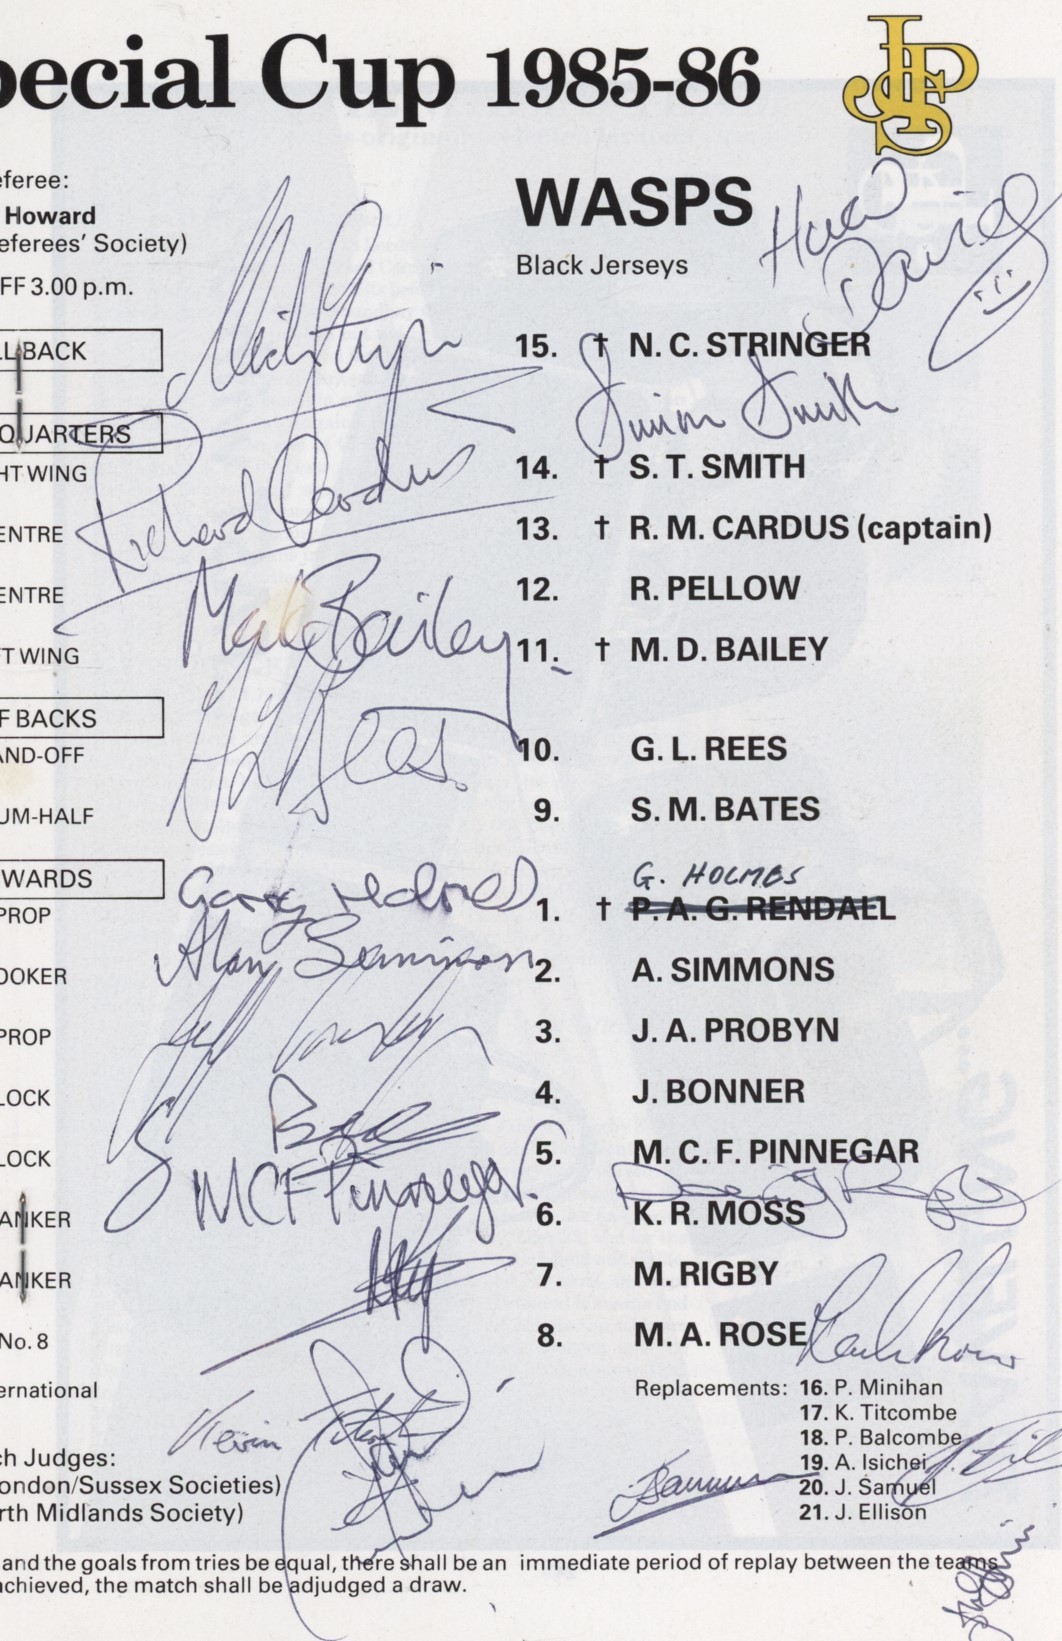 pecial Cup 1985-86
JPS
eferee:
Howard
eferees' Society)
FF 3.00 p.m.
WASPS
Black Jerseys
Huw Davies
LLBACK
15. † N. C. STRINGER
Simon Smith
QUARTERS
HT WING
14. † S. T. SMITH
Richard Cardus
ENTRE
13. † R. M. CARDUS (captain)
ENTRE
12. R. PELLOW
Mark Bailey
T WING
11. † M. D. BAILEY
F BACKS
AND-OFF
10. G. L. REES
G L Rees
UM-HALF
9. S. M. BATES
WARDS
G. HOLMES
PROP
1. † P. A. G. RENDALL
Alan Simmons
OOKER
2. A. SIMMONS
PROP
3. J. A. PROBYN
LOCK
4. J. BONNER
LOCK
5. M. C. F. PINNEGAR
MCF Pinnegar
ANKER
6. K. R. MOSS
ANKER
7. M. RIGBY
No. 8
8. M. A. ROSE
ernational
Replacements: 16. P. Minihan
17. K. Titcombe
18. P. Balcombe
19. A. Isichei
20. J. Samuel
21. J. Ellison
Kevin
ch Judges:
ondon/Sussex Societies)
rth Midlands Society)
and the goals from tries be equal, there shall be an immediate period of replay between the teams
achieved, the match shall be adjudged a draw.